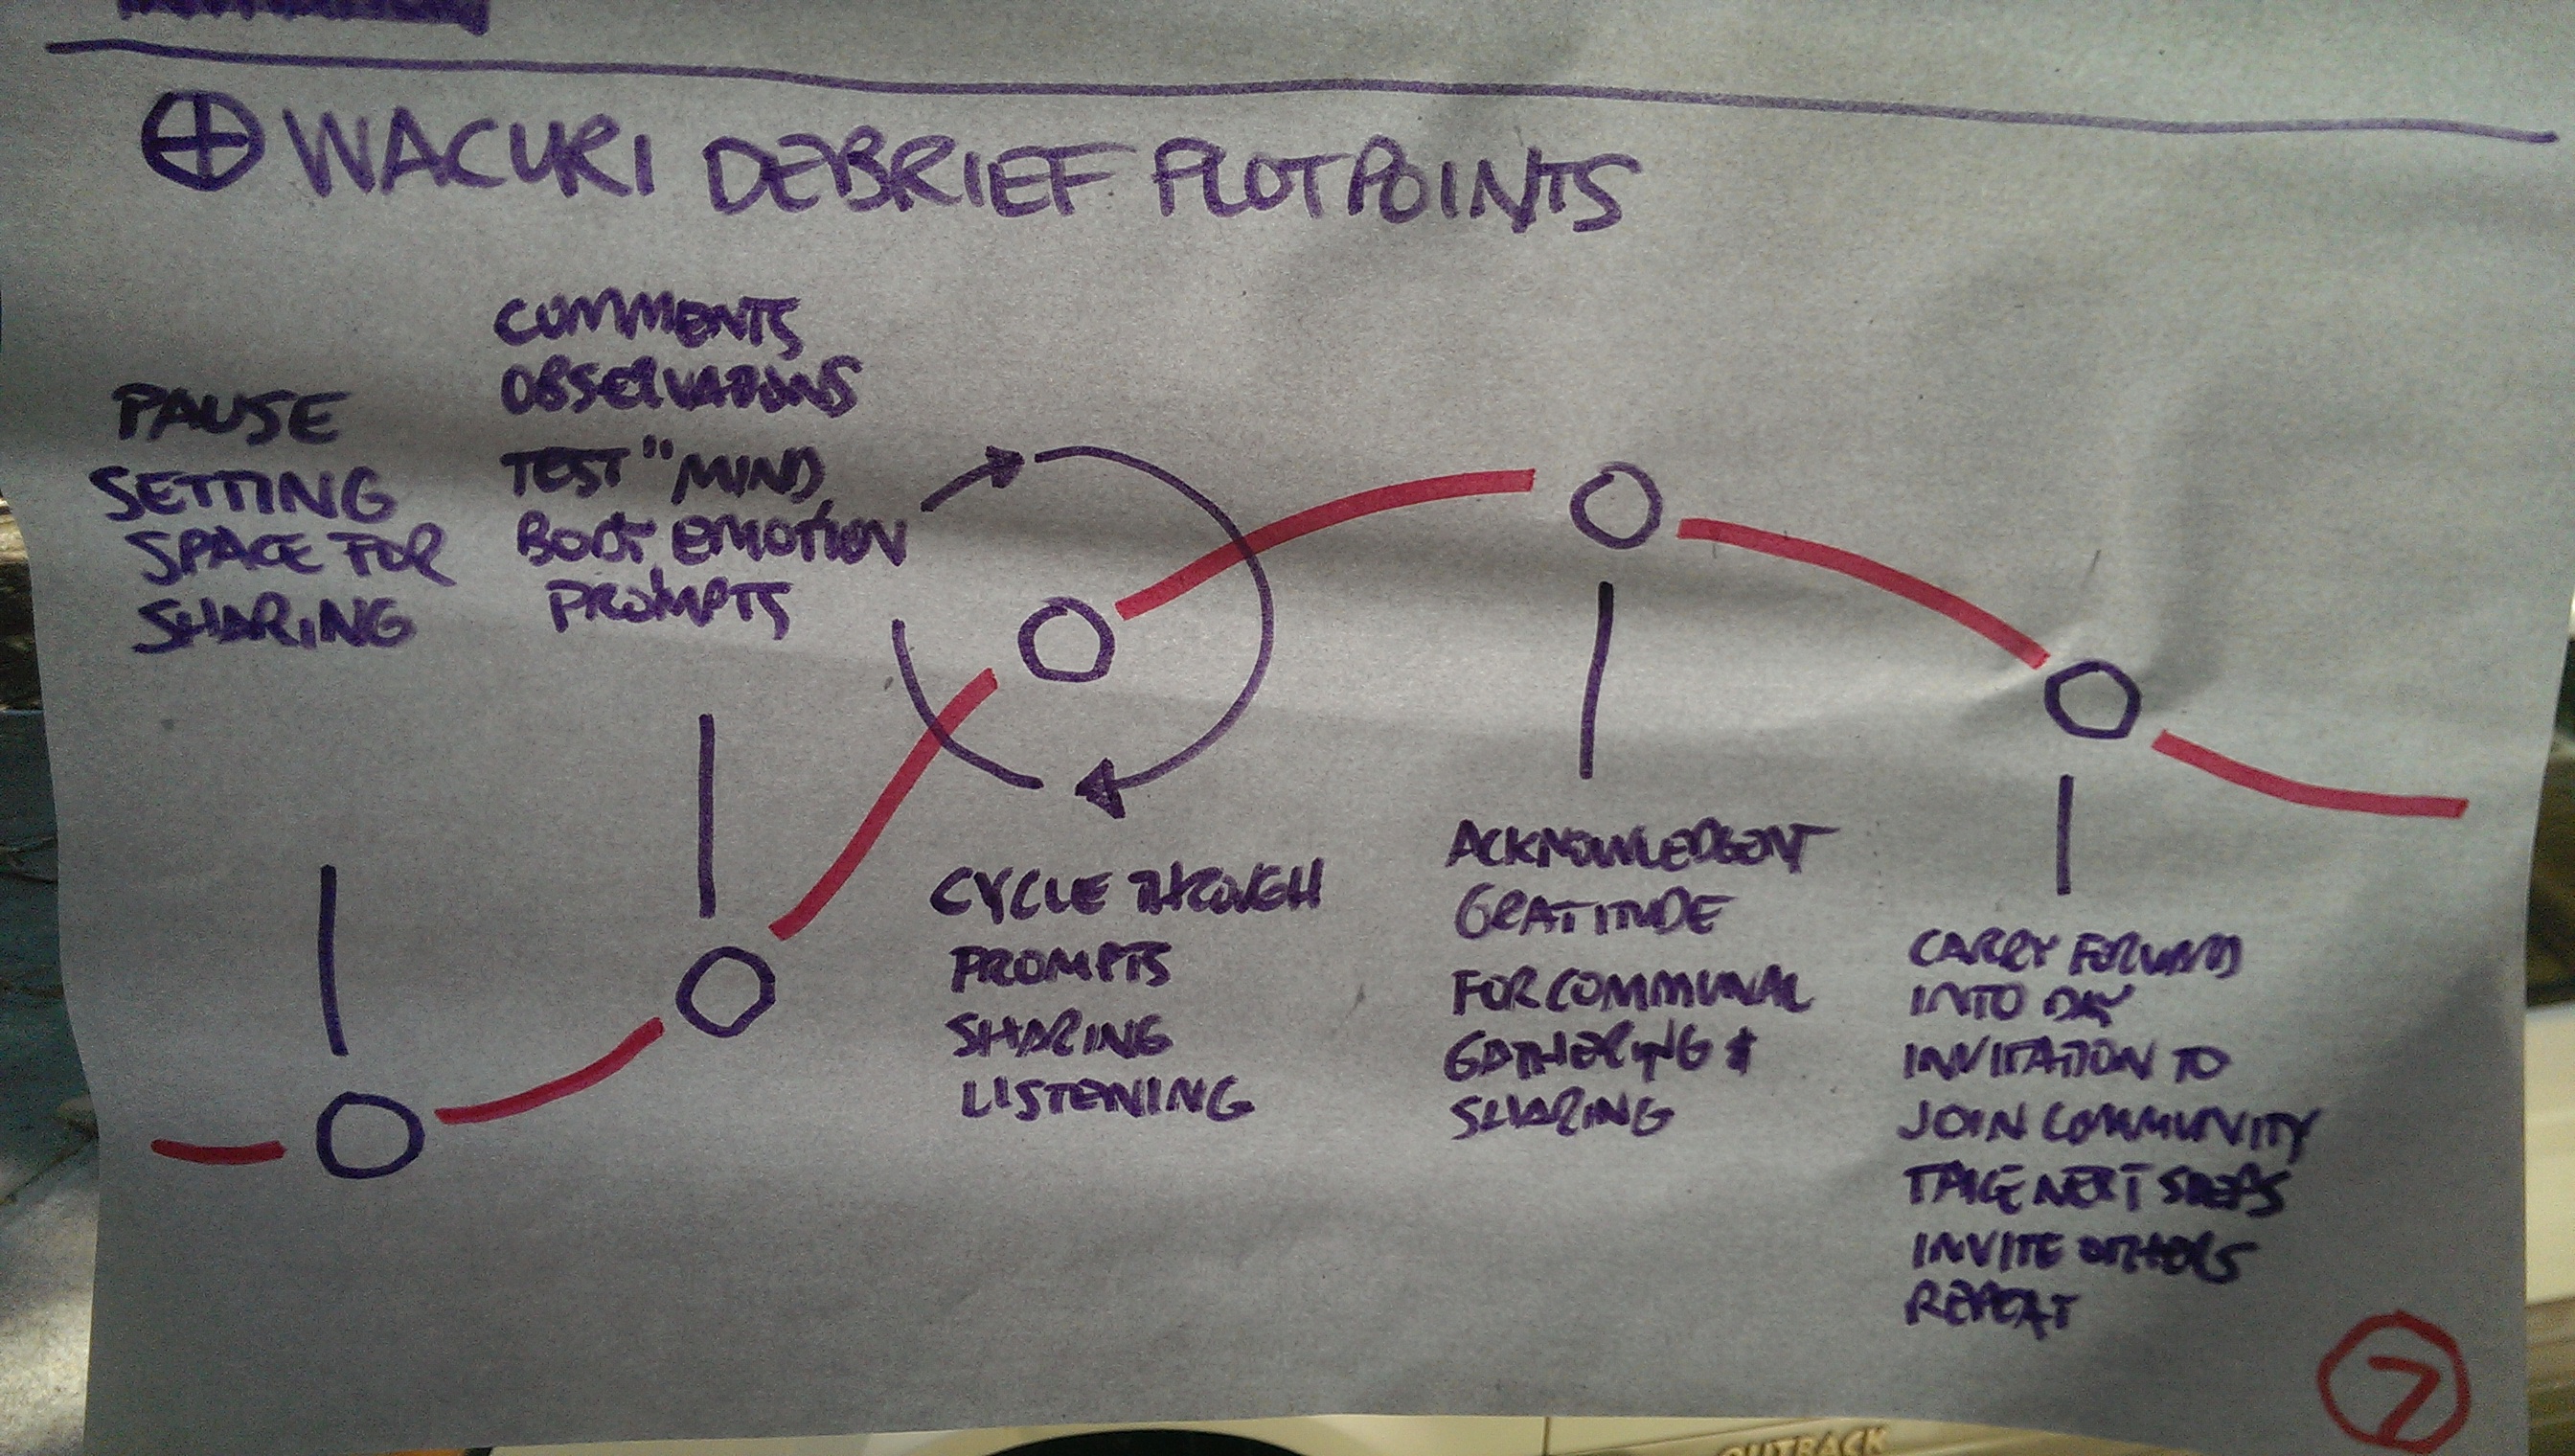 WACURI DEBRIEF PLOTPOINTS
PAUSE
SETTING
SPACE FOR
SHARING
COMMENTS
OBSERVATIONS
TEST "MIND
BODY EMOTION
PROMPTS
CYCLE THROUGH
PROMPTS
SHARING
LISTENING
ACKNOWLEDGENT
GRATITUDE
FOR COMMUNAL
GATHERING &
SHARING
CARRY FORWARD
INTO DAY
INVITATION TO
JOIN COMMUNITY
TAKE NEXT STEPS
INVITE OTHERS
REPEAT
7
OUTBACK